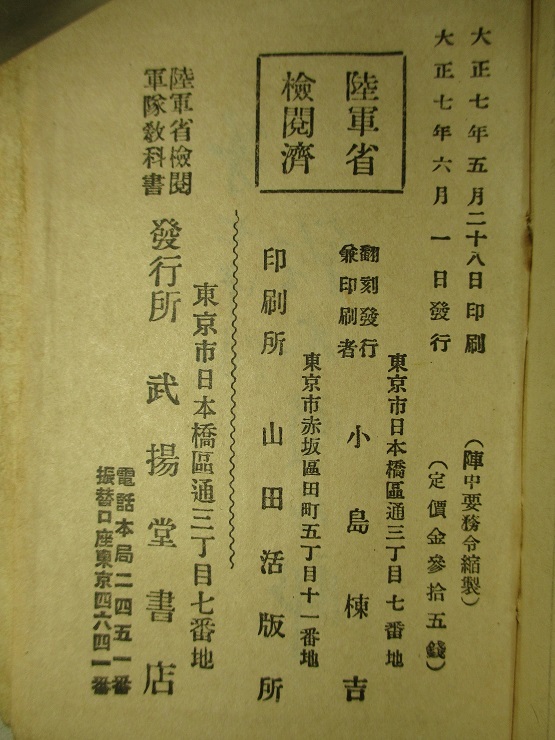 大正七年五月二十八日印刷
（陣中要務令縮製）
大正七年六月一日發行
（定價金參拾五錢）
陸軍省
檢閱濟
東京市日本橋區通三丁目七番地
翻刻發行
兼印刷者
小島棟吉
東京市赤坂區田町五丁目十一番地
印刷所 山田活版所
東京市日本橋區通三丁目七番地
陸軍省檢閱
軍隊敎科書
發行所 武揚堂書店
電話本局二四五一番
振替口座東京四六四一番